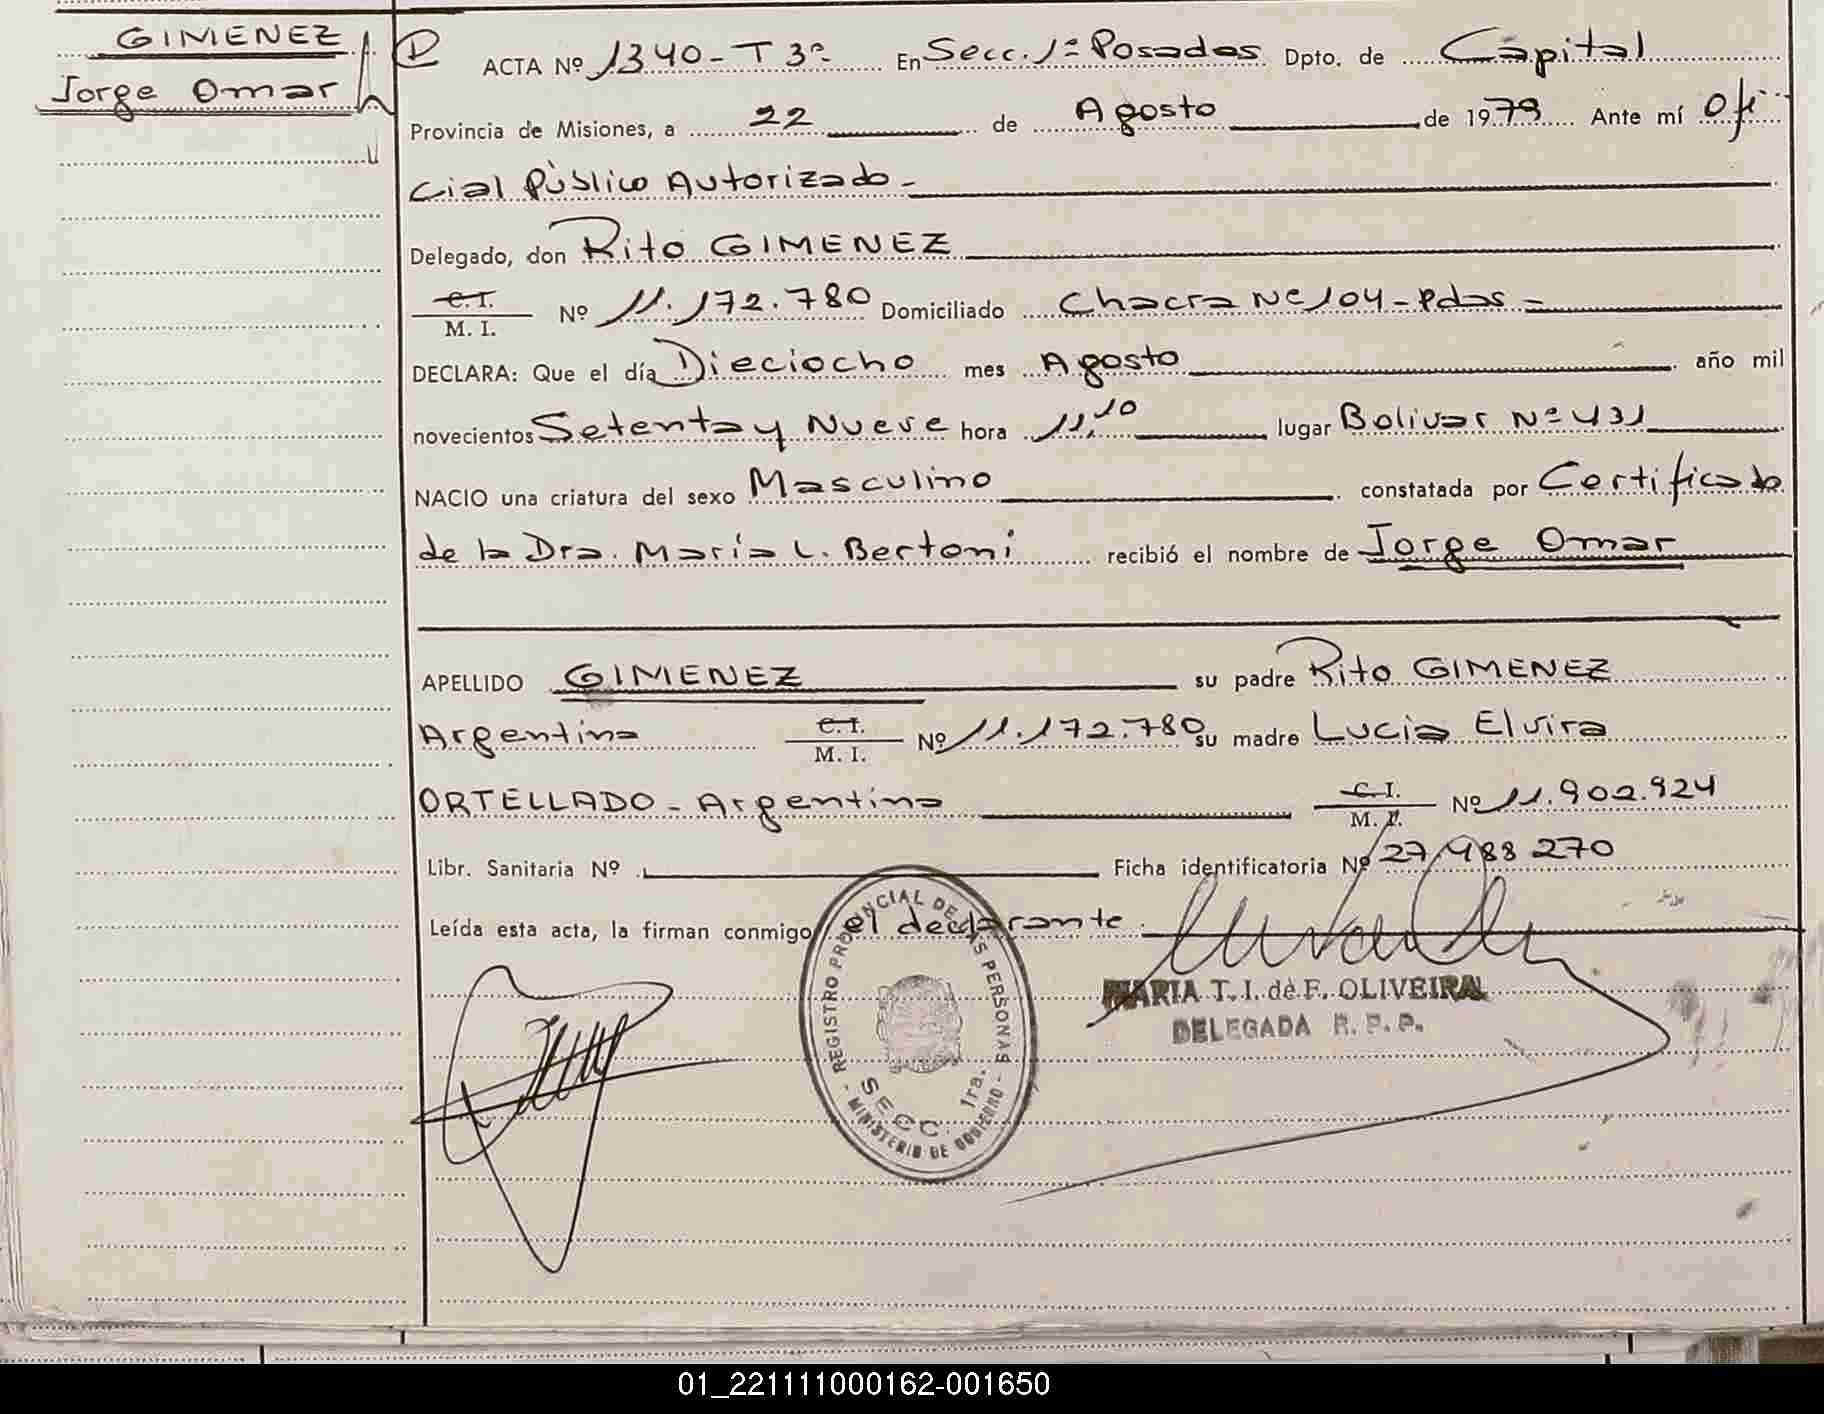 GIMENEZ
Jorge Omar
ACTA Nº 1340-T 3º- En Secc. 1ª Posadas Dpto. de Capital
Provincia de Misiones, a 22 de Agosto de 1979 Ante mí Ofi
cial Público Autorizado-
Delegado, don Rito GIMENEZ
C.I. / M. I. Nº 11.172.780 Domiciliado Chacra Nº 104-Pdas-
DECLARA: Que el día Dieciocho mes Agosto año mil
novecientos Setenta y Nueve hora 11,10 lugar Bolivar Nº 431
NACIO una criatura del sexo Masculino constatada por Certificado
de la Dra. María L. Bertoni recibió el nombre de Jorge Omar
APELLIDO GIMENEZ su padre Rito GIMENEZ
Argentino C.I. / M. I. Nº 11.172.780 su madre Lucia Elvira
ORTELLADO - Argentina C.I. / M. I. Nº 11.902.924
Libr. Sanitaria Nº Ficha identificatoria Nº 27.488 270
Leída esta acta, la firman conmigo el declarante.
REGISTRO PROVINCIAL DE LAS PERSONAS
SECC. 1ra.
- MINISTERIO DE GOBIERNO -
MARIA T. I. de F. OLIVEIRA
DELEGADA R. P. P.
01_221111000162-001650